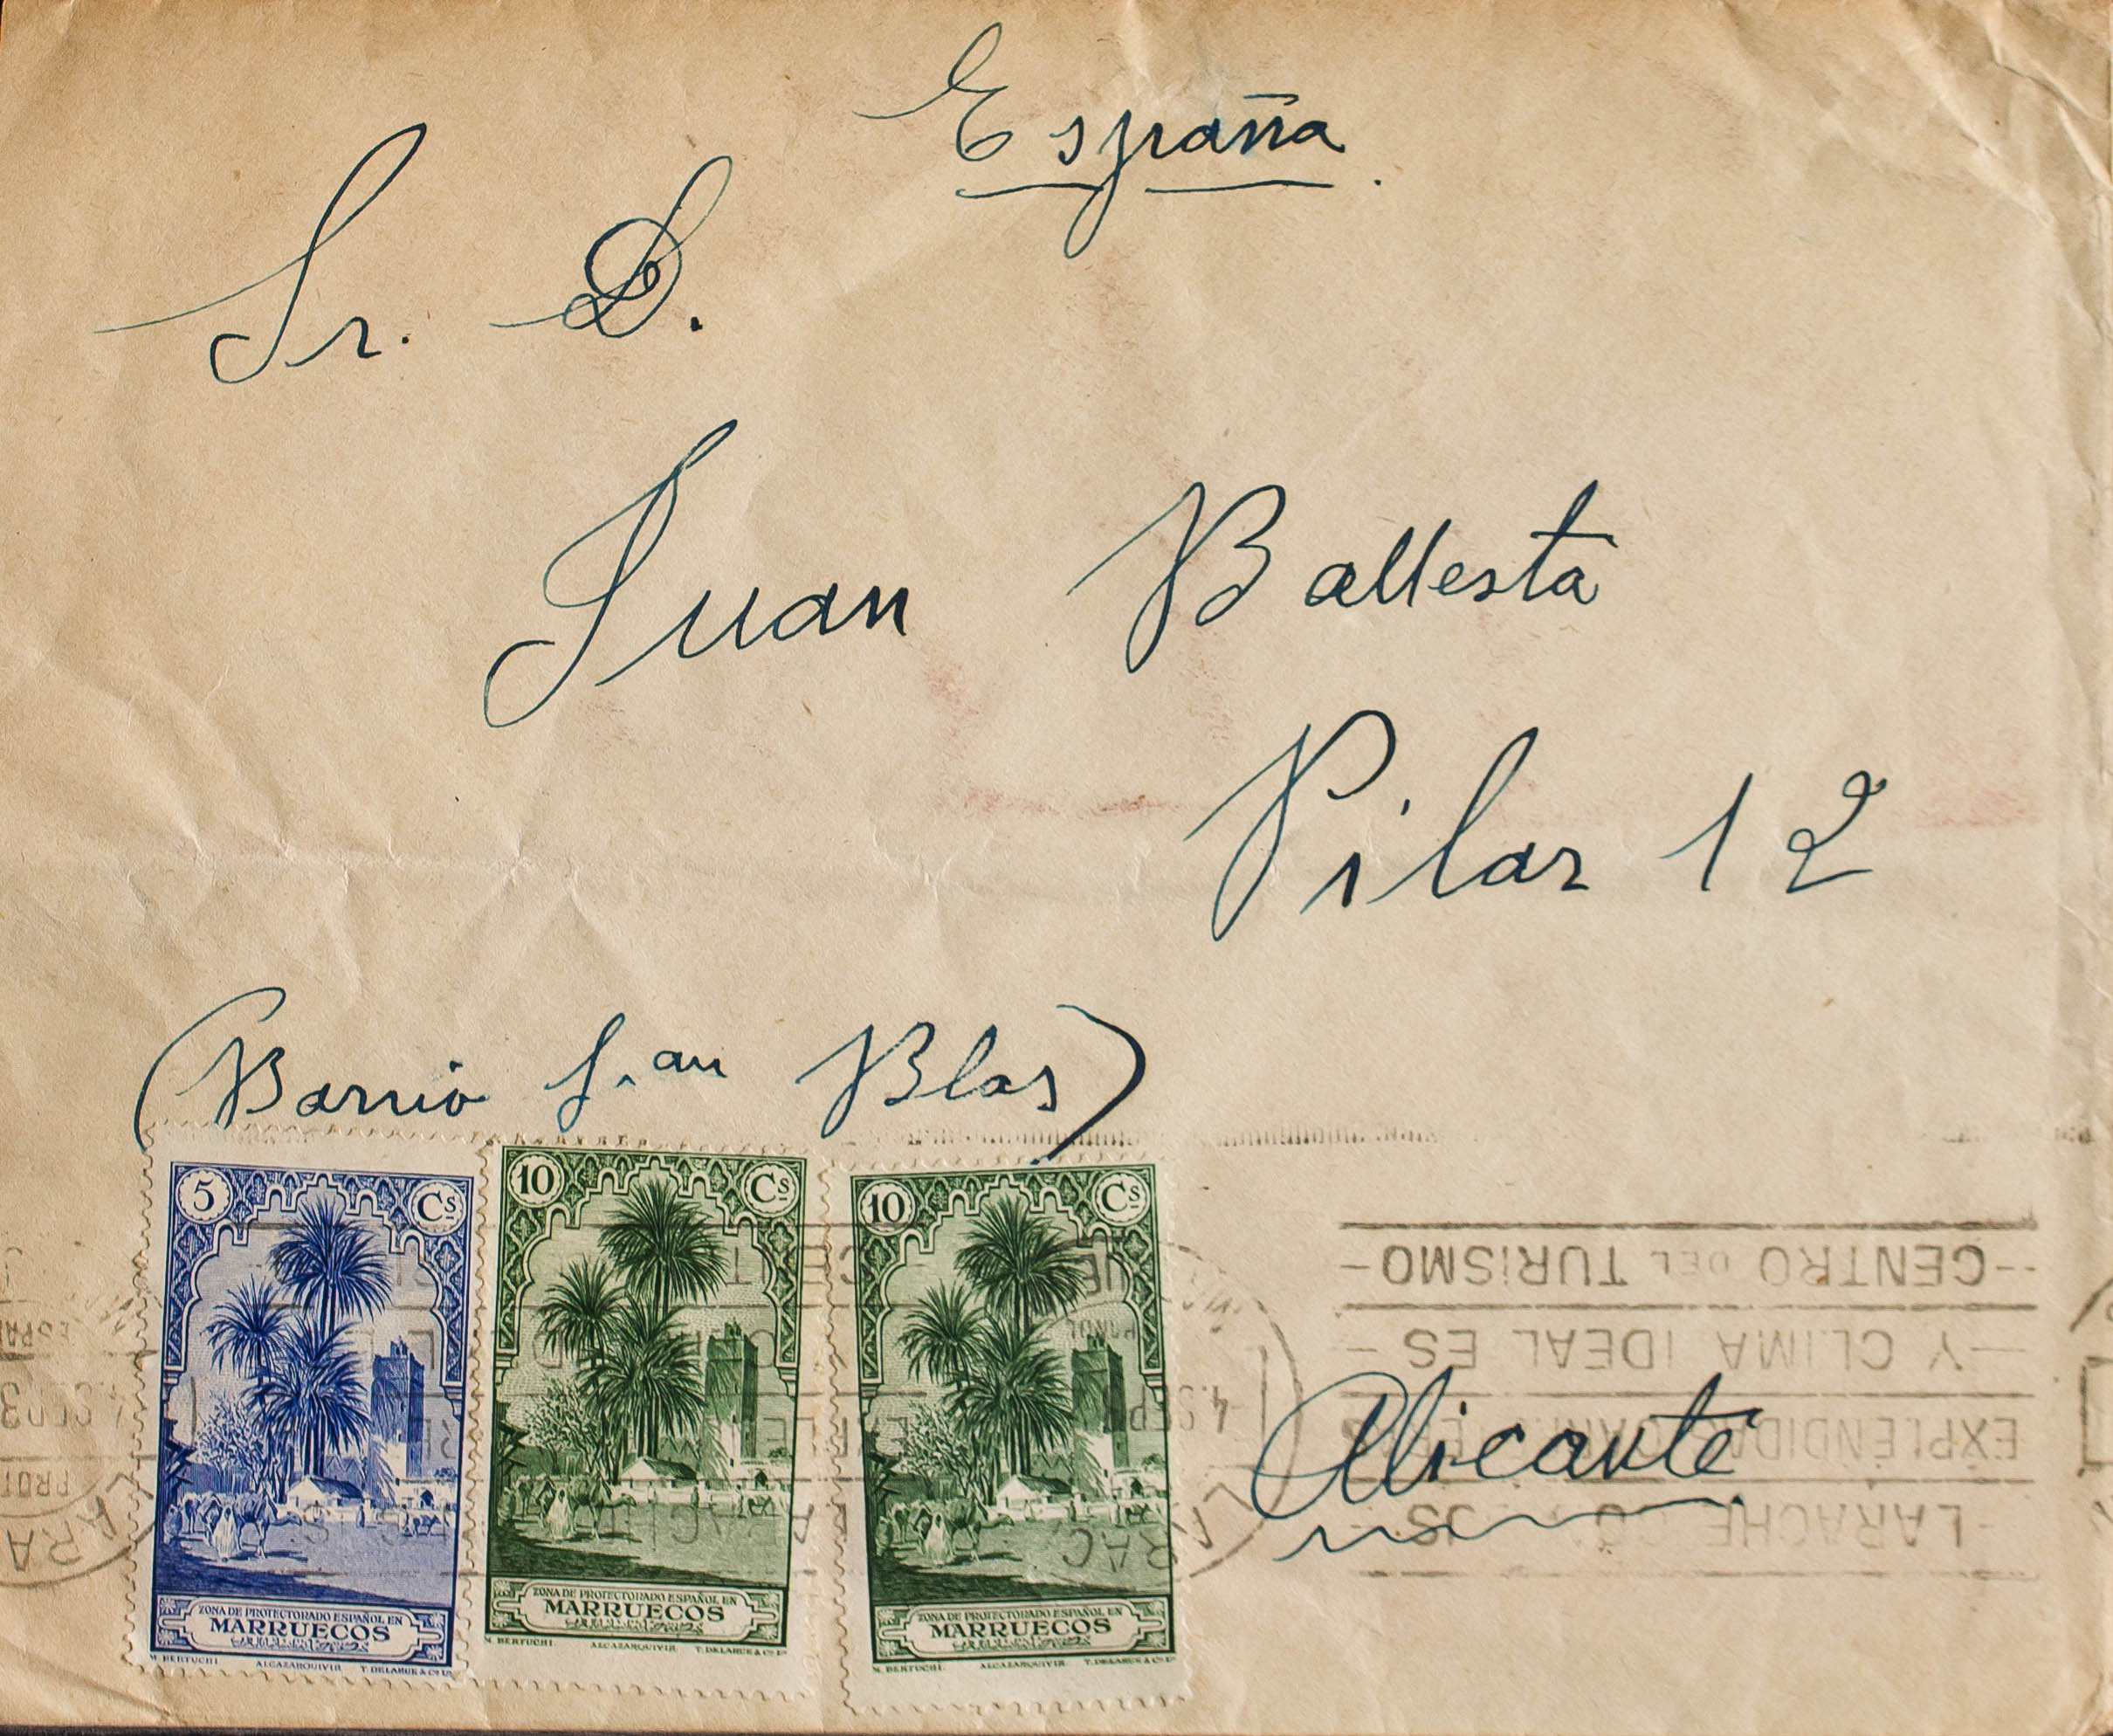 España.
Sr. D.
Juan Ballesta
Pilar 12
(Barrio S.an Blas)
Alicante
5 Cs
ZONA DE PROTECTORADO ESPAÑOL EN
MARRUECOS
M. BERTUCHI ALCAZARQUIVIR T. DELARUE & Co Ld
10 Cs
ZONA DE PROTECTORADO ESPAÑOL EN
MARRUECOS
M. BERTUCHI. ALCAZARQUIVIR T. DELARUE & Co Ld
10 Cs
ZONA DE PROTECTORADO ESPAÑOL EN
MARRUECOS
M. BERTUCHI. ALCAZARQUIVIR T. DELARUE & Co Ld
-LARACHE
EXPLENDIDA
- Y CLIMA IDEAL ES -
-- CENTRO DEL TURISMO -
4.SEP